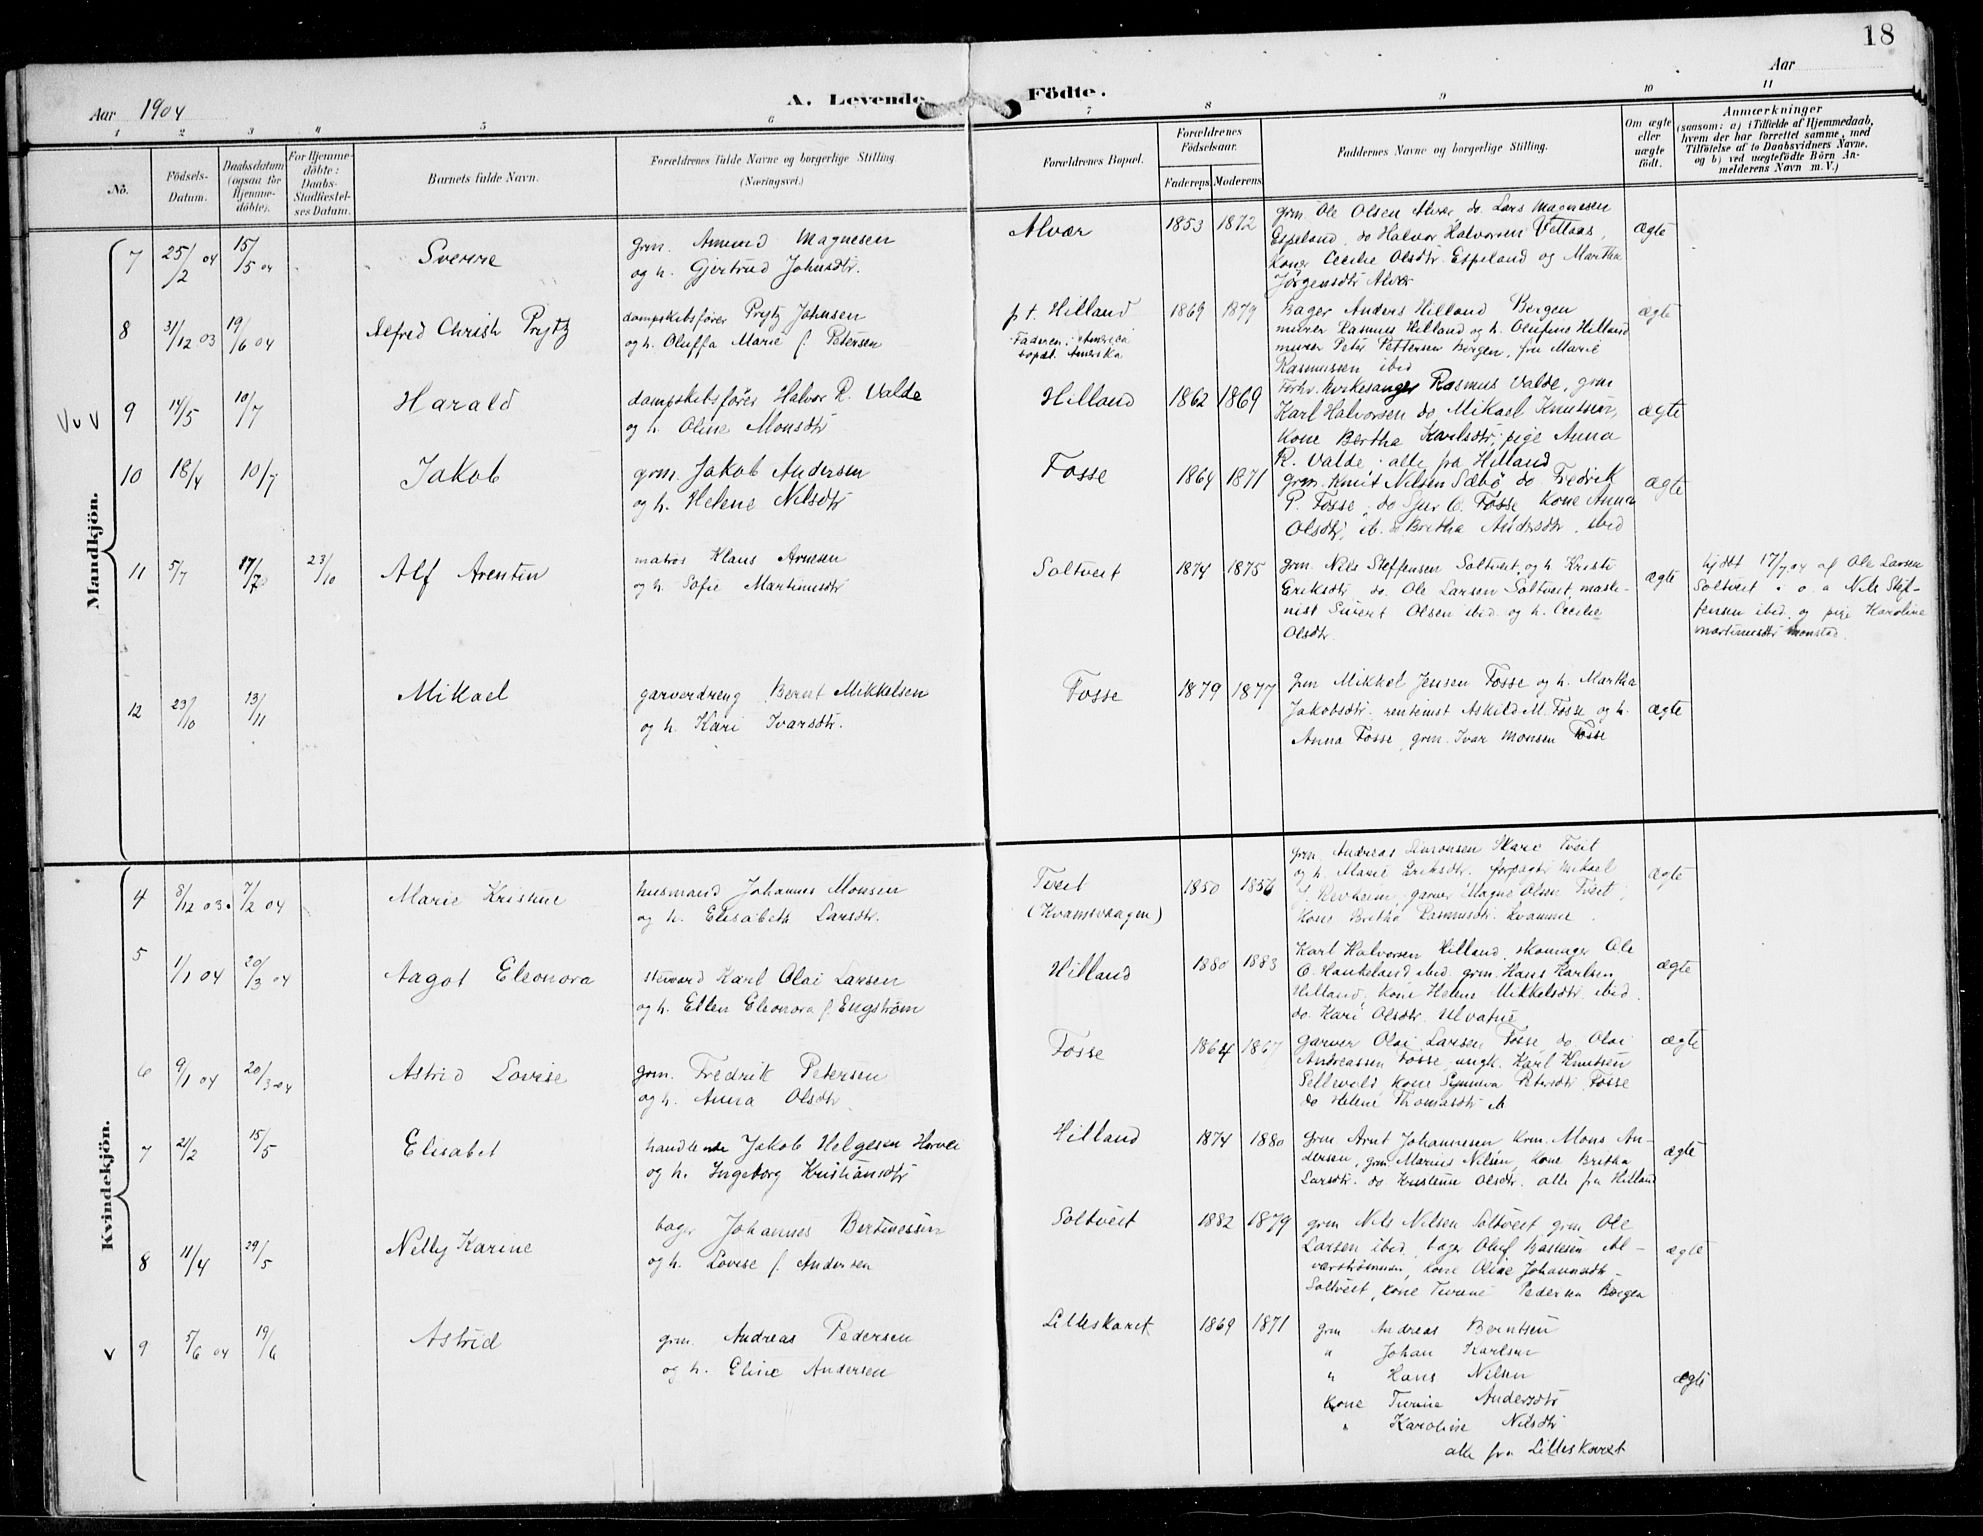 18
Aar 1904
A. Levende Födte.
Aar
1 2 3 4 5 6 7 8 9 10 11
No.
Födsels-Datum.
Daabsdatum (ogsaa for Hjemme-döbte).
For Hjemme-döbte: Daabs-Stadfæstel-ses Datum.
Barnets fulde Navn.
Forældrenes fulde Navne og borgerlige Stilling. (Næringsvei.)
Forældrenes Bopæl.
Forældrenes Födselsaar.
Faderens.
Moderens.
Faddernes Navne og borgerlige Stilling.
Om ægte eller uægte födt.
Anmærkninger
(saasom: a) i Tilfælde af Hjemmedaab,
hvem der har forrettet samme, med
Tilföielse af to Daabsvidners Navne.
og b) ved uægtefödte Börn An-
melderens Navn m. V.)
Mandkjön.
7 25/2 04 15/5 04 Sverre
grm. Amund Magnesen
og h. Gjertrud Johnsdtr.
Alvær 1853 1872
grm. Ole Olsen Alvær do. Lars Magnesen
Espeland, do Halvor Halvorsen Vetaas,
Kone Cecilie Olsdtr. Espeland og Martha
Jørgensdtr Alvær
ægte
8 31/12 03 19/6 04 Alfred Christh Prytz
dampskibsfører Prytz Johnsen
og h. Oluffa Marie f. Petersen
p t. Hilland
Faderen: Amerika
bopæl. Amerika
1869 1879
Bager Anders Hilland Bergen
murer Rasmus Hilland og h. Olufine Hilland
murer Peter Pettersen Bergen, fru Marie
Rasmussen ibid
ægte
V v V 9 14/5 10/7 Harald
dampskibsfører Halvor R. Valde
og h. Oline Monsdtr
Hilland 1862 1869
Forhv. kirkesanger Rasmus Valde, grm
Karl Halvorsen do Mikael Knutsen,
Kone Bertha Karlsdtr, pige Anna
R. Valde alle fra Hilland
ægte
10 18/4 10/7 Jakob
grm. Jakob Andersen
og h. Helene Nilsdtr
Fosse 1864 1871
grm. Knut Nilsen Sæbö do. Fredrik
P. Fosse, do Sjur O. Fosse, Kone Anna
Olsdtr, Britha Andersdtr. ibid
ægte
11 5/7 17/7 23/10 Alf Arentin
matros Klaus Arnesen
og h. Sofie Martinusdtr
Soltveit 1874 1875
grm. Nils Steffensen Soltveit, og h. Kristi
Eriksdtr do. Ole Larsen Soltveit, maski-
nist Sivert Olsen ibid og h. Cecilie
Olsdtr.
ægte
hjdbt 17/7 04 af Ole Larsen
Soltveit Nils Stef-
fensen ibid. og pige Karoline
Martinusdtr Monstad.
12 23/10 13/11 Mikael
garverdreng Bernt Mikkelsen
og h. Kari Ivarsdtr.
Fosse 1879 1877
Grm Mikkel Jensen Fosse og h. Martha
Jakobsdtr. rentenist Askild M. Fosse og h.
Anna Fosse, grm. Ivar Monsen Fosse
ægte
Kvindekjön.
4 8/12 03. 7/2 04 Marie Kristine
husmand Johannes Monsen
og h. Elisabeth Larsdtr.
Tveit
(Kvamsvaagen)
1850 1856
grm. Andreas Simonsen Skare Tveit
og h. Marie Eriksdtr. forpagtr Mikael
J. garver Magne Olsen Tveit,
Kone Britha Rasmusdtr. Kvamme.
ægte
5 1/1 04 20/3 04 Aagot Eleonora
steward Karl Olai Larsen
og h. Ellen Eleonora f. Engstrøm
Hilland 1880 1883
Karl Halvorsen Hilland, skomager Ole
O. Haukeland ibid. grm. Hans Karlsen
Hilland, Kone Helene Mikkelsdtr. ibid.
do. Kari Olsdtr.
ægte
6 9/1 04 20/3 04 Astrid Lovise
grm. Fredrik Petersen
og h. Anna Olsdtr
Fosse 1864 1867
garver Olai Larsen Fosse, do Olai
Andreassen Fosse, ungk. Karl Knutsen
Sellevold, Kone Synneva Petersdtr. Fosse
do Helene Thomasdtr
ægte
7 21/2 15/5 Elisabet
handlende Jakob Helgesen Horvei
og h. Ingeborg Kristiansdtr
Hilland 1874 1880
grm. Arnt Johannesen krm. Mons An-
dersen, grm Marius Nilsen, Kone Britha
Larsdtr. do. Kristine Olsdtr. alle fra Hilland
ægte
8 11/4 29/5 Nelly Karine
bager Johannes Bertinessen
og h. Lovise f. Andersen
Soltveit 1882 1879
grm Nils Nilsen Soltveit grm Ole
Larsen ibid, bager Oluf Bastesen Al-
værstrømmen, Kone Oline Johannesdtr.
Soltveit, kone Turine Pedersen Bergen
ægte
v 9 5/6 04 19/6 Astrid
grm. Andreas Pedersen
og h. Eline Andersen
Lilleskaret 1869 1871
grm Andreas Berntsen
" Johan Karlsen
" Hans Nilsen
Kone Turine Andersdtr
" Karoline Nilsdtr
alle fra Lilleskaret
ægte